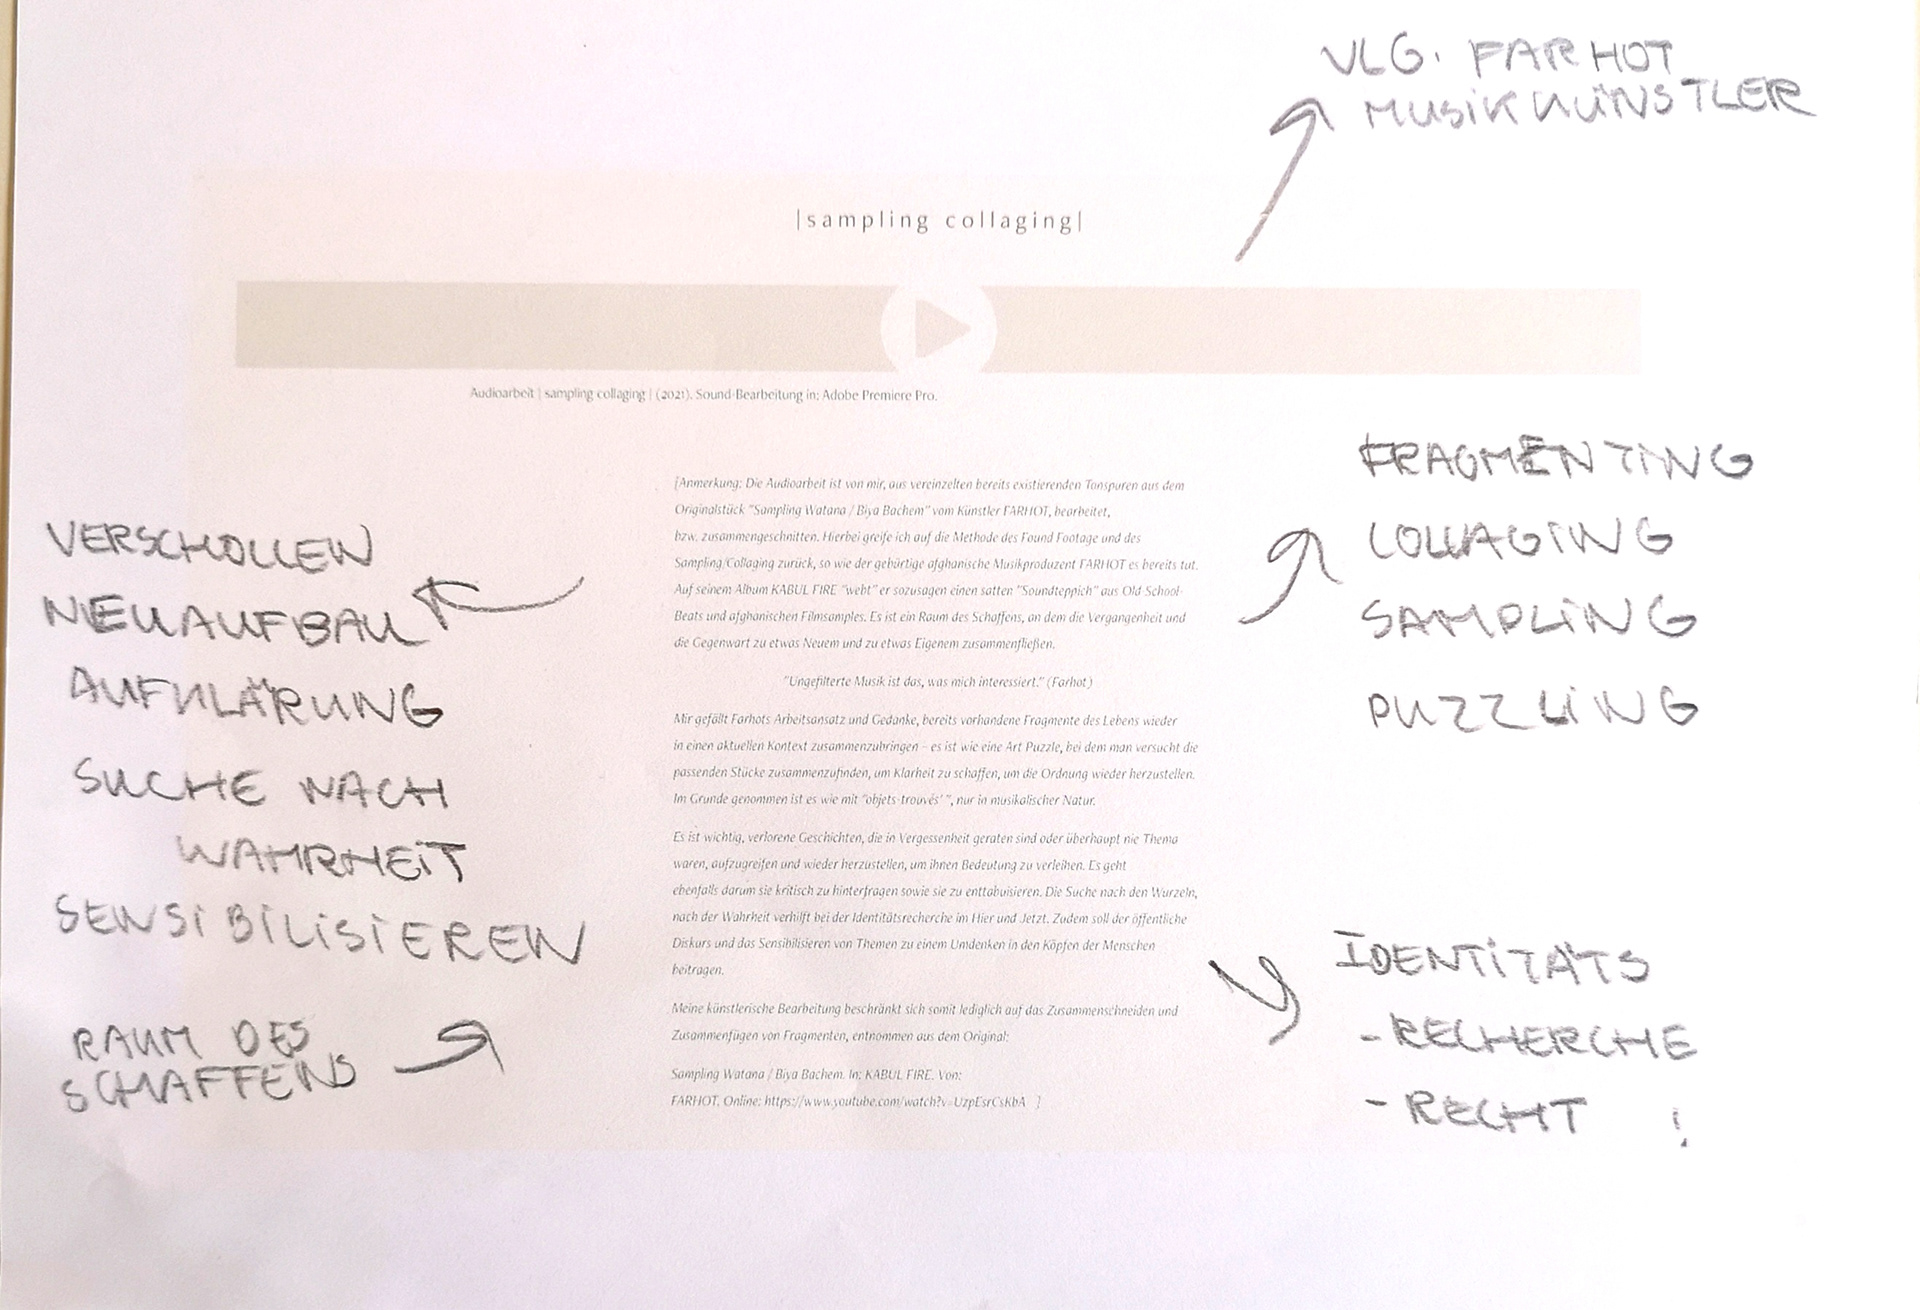 VLG. FARHOT
MUSIKKÜNSTLER
|sampling collaging|
Audioarbeit | sampling collaging | (2021). Sound-Bearbeitung in: Adobe Premiere Pro.
[Anmerkung: Die Audioarbeit ist von mir, aus vereinzelten bereits existierenden Tonspuren aus dem
Originalstück "Sampling Watana / Biya Bachem" vom Künstler FARHOT, bearbeitet,
bzw. zusammengeschnitten. Hierbei greife ich auf die Methode des Found Footage und des
Sampling/Collaging zurück, so wie der gebürtige afghanische Musikproduzent FARHOT es bereits tut.
Auf seinem Album KABUL FIRE "webt" er sozusagen einen satten "Soundteppich" aus Old-School-
Beats und afghanischen Filmsamples. Es ist ein Raum des Schaffens, an dem die Vergangenheit und
die Gegenwart zu etwas Neuem und zu etwas Eigenem zusammenfließen.
"Ungefilterte Musik ist das, was mich interessiert." (Farhot)
Mir gefällt Farhots Arbeitsansatz und Gedanke, bereits vorhandene Fragmente des Lebens wieder
in einen aktuellen Kontext zusammenzubringen – es ist wie eine Art Puzzle, bei dem man versucht die
passenden Stücke zusammenzufinden, um Klarheit zu schaffen, um die Ordnung wieder herzustellen.
Im Grunde genommen ist es wie mit "objets-trouvés' ", nur in musikalischer Natur.
Es ist wichtig, verlorene Geschichten, die in Vergessenheit geraten sind oder überhaupt nie Thema
waren, aufzugreifen und wieder herzustellen, um ihnen Bedeutung zu verleihen. Es geht
ebenfalls darum sie kritisch zu hinterfragen sowie sie zu enttabuisieren. Die Suche nach den Wurzeln,
nach der Wahrheit verhilft bei der Identitätsrecherche im Hier und Jetzt. Zudem soll der öffentliche
Diskurs und das Sensibilisieren von Themen zu einem Umdenken in den Köpfen der Menschen
beitragen.
Meine künstlerische Bearbeitung beschränkt sich somit lediglich auf das Zusammenschneiden und
Zusammenfügen von Fragmenten, entnommen aus dem Original:
Sampling Watana / Biya Bachem. In: KABUL FIRE. Von:
FARHOT. Online: https://www.youtube.com/watch?v=UzpEsrCsKbA ]
VERSCHOLLEN
NEUAUFBAU
AUFKLÄRUNG
SUCHE NACH
WAHRHEIT
SENSIBILISIEREN
RAUM DES
SCHAFFENS
FRAGMENTING
COLLAGING
SAMPLING
PUZZLING
IDENTITÄTS
-RECHERCHE
-RECHT !